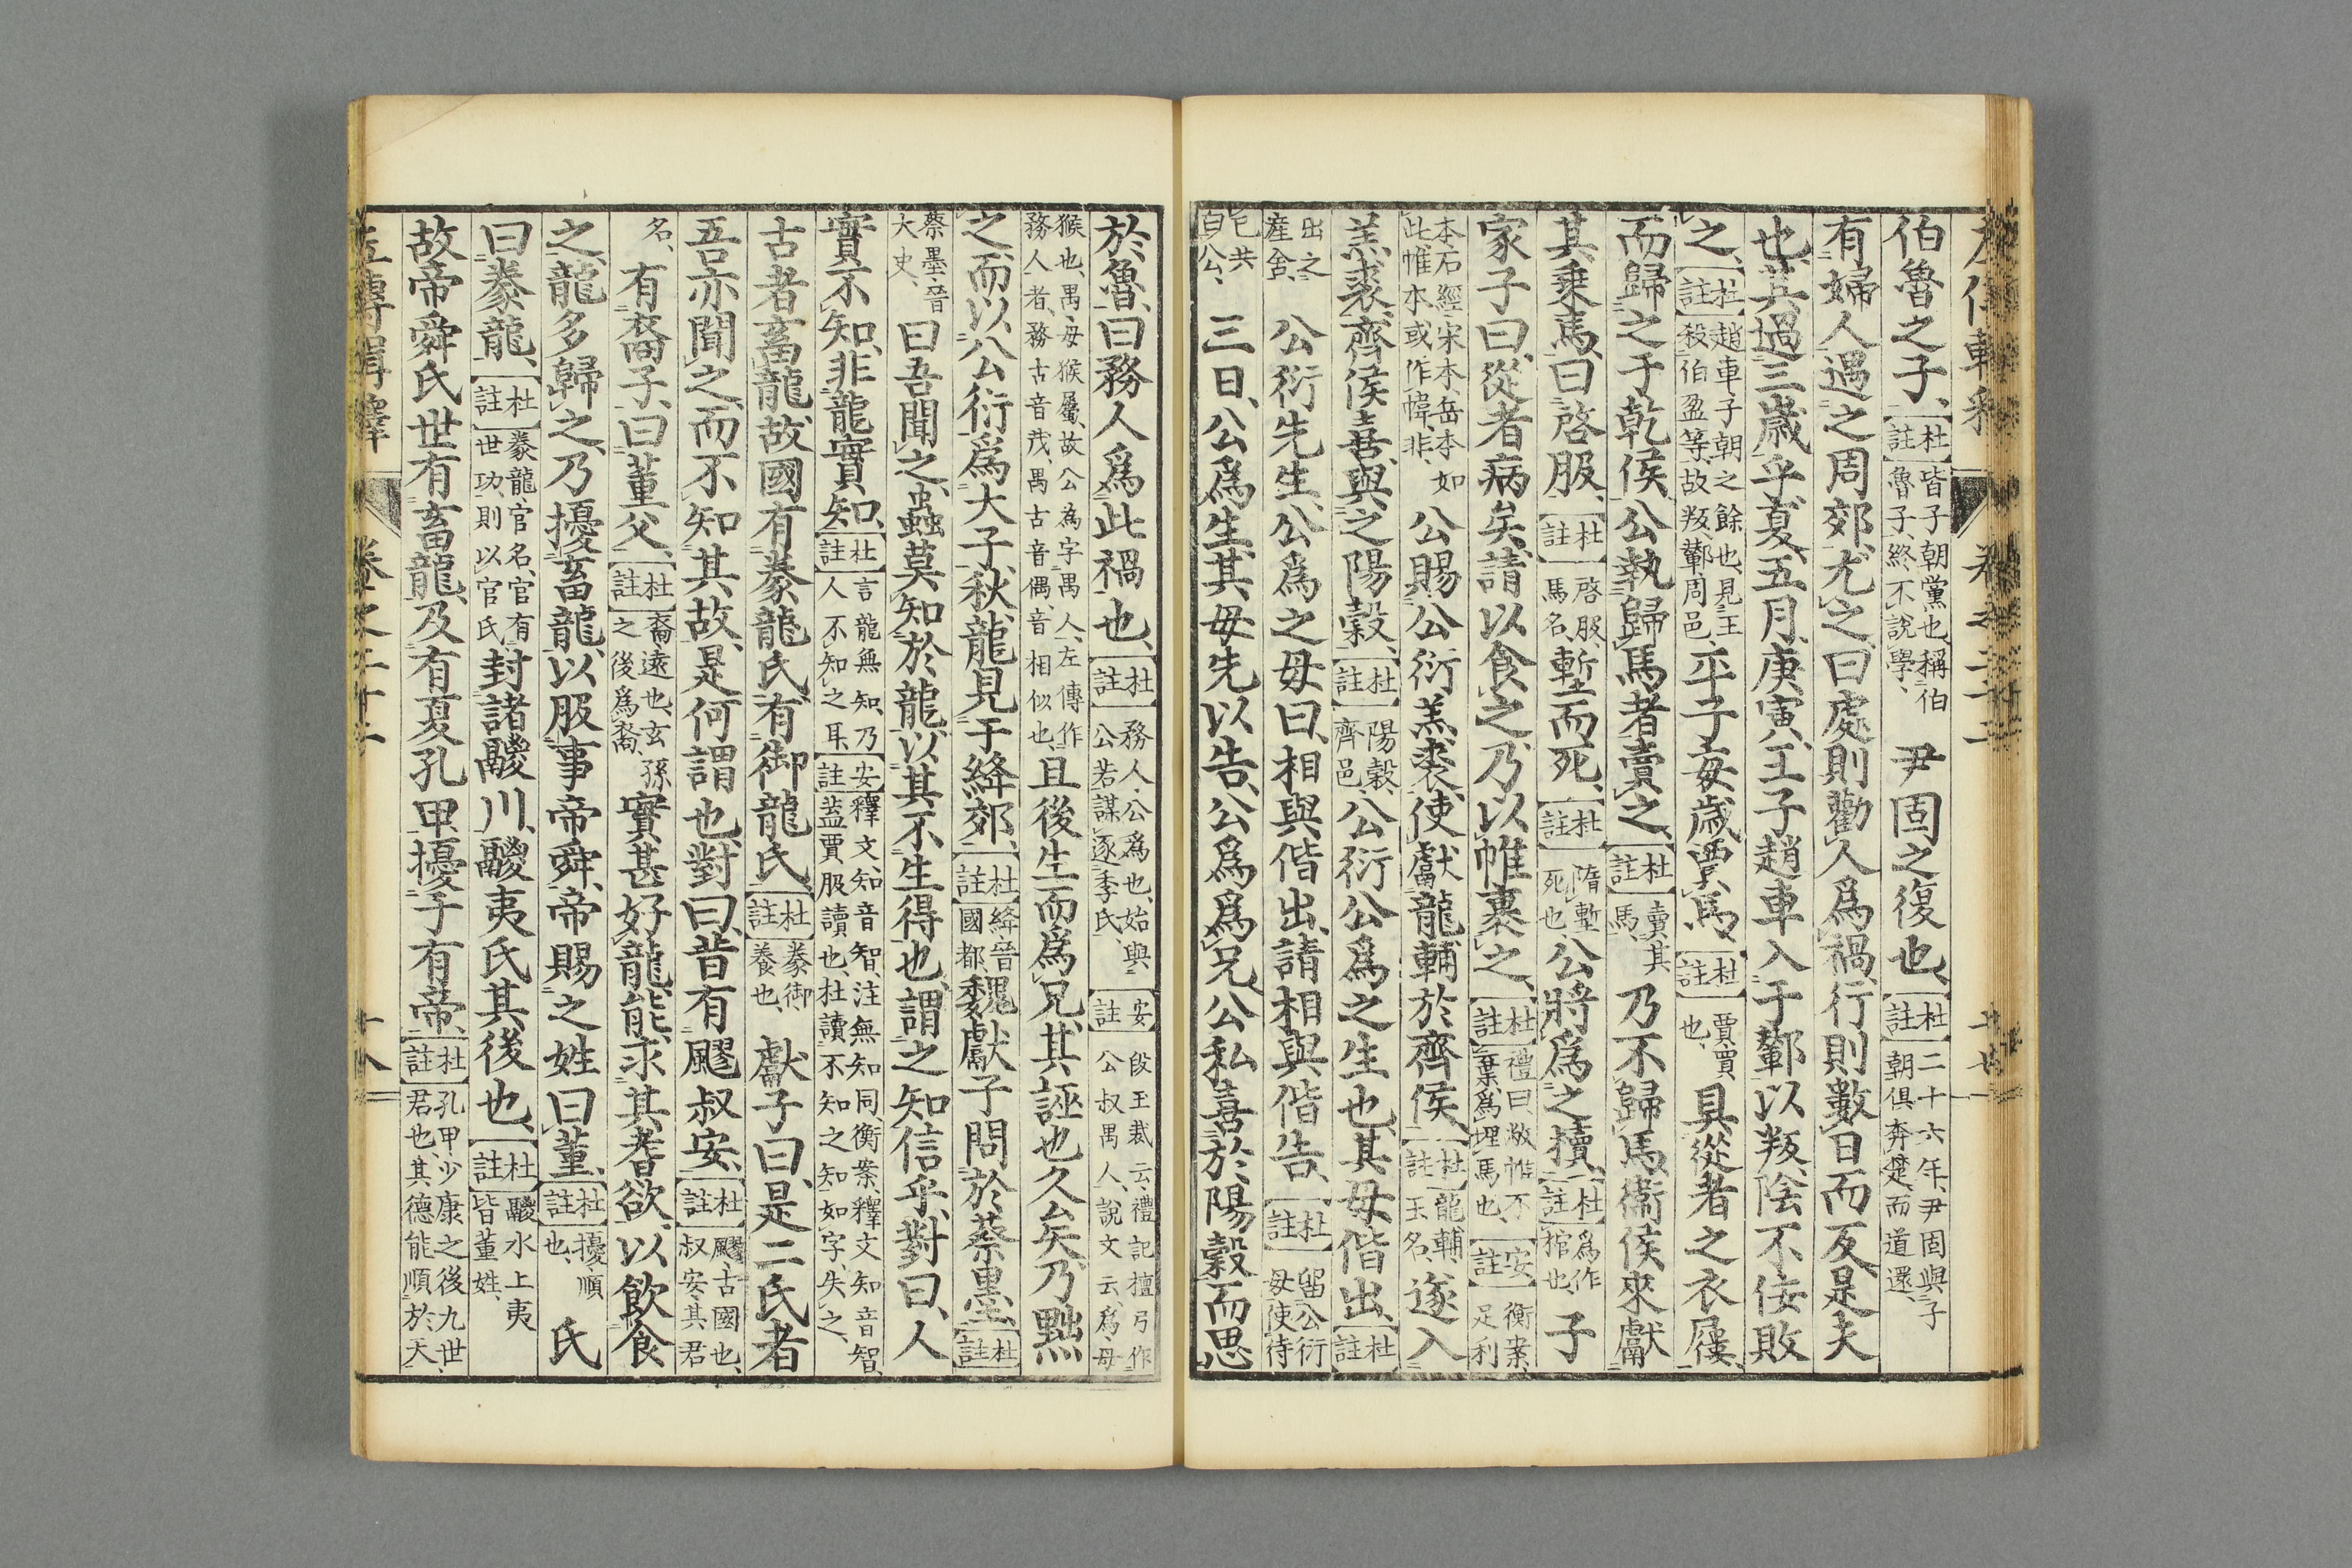 左傳輯釋 卷之二十二
伯魯之子、【杜註】皆子朝黨也、稱伯魯子、終不說學、尹固之復也、【杜註】二十六年、尹固與子朝俱奔楚、而道還、
有婦人遇之周郊、尤之、曰處則勸人爲禍、行則數日而反、是夫
也、其過三歲乎、夏、五月、庚寅、王子趙車入于鄻以叛、陰不佞敗
之、【杜註】趙車、子朝之餘也、見王殺伯盈等、故叛、鄻、周邑、平子每歲賈馬、【杜註】賈、買也、具從者之衣屨、
而歸之于乾侯、公執歸馬者賣之、【杜註】賣其馬、乃不歸馬、衞侯來獻
其乘馬、曰啓服、【杜註】啓服、馬名、塹而死、【杜註】隋塹死也、公將爲之櫝、【杜註】爲作棺也、子
家子曰、從者病矣、請以食之、乃以帷裹之、【杜註】禮曰、敝帷不棄、爲埋馬也、【安註】衡案、足利
本石經宋本岳本如此、帷本或作幃、非、公賜公衍羔裘、使獻龍輔於齊侯、【杜註】龍輔、玉名、遂入
羔裘、齊侯喜、與之陽穀、【杜註】陽穀、齊邑、公衍公爲之生也、其母偕出、【杜註】
出之產舍、公衍先生、公爲之母曰、相與偕出、請相與偕告、【杜註】留公衍母使待
已共白公、三日、公爲生、其母先以告、公爲爲兄、公私喜於陽穀而思
於魯、曰務人爲此禍也、【杜註】務人、公爲也、始與公若謀逐季氏、【安註】段玉裁云、禮記檀弓作公叔禺人、說文云、爲、母
猴也、禺、母猴屬、故公爲字禺人、左傳作務人者、務古音茂、禺古音偶、音相似也、且後生而爲兄、其誣也久矣、乃黜
之、而以公衍爲大子、秋、龍見于絳郊、【杜註】絳、晉國都、魏獻子問於蔡墨、【杜註】
蔡墨、晉大史、曰吾聞之、蟲莫知於龍、以其不生得也、謂之知信乎、對曰、人
實不知、非龍實知、【杜註】言龍無知、乃人不知之耳、【安註】釋文、知音智、注無知同、衡案、釋文知音智、蓋賈服讀也、杜讀不知之知如字、失之、
古者畜龍、故國有豢龍氏、有御龍氏、【杜註】豢御、養也、獻子曰、是二氏者
吾亦聞之、而不知其故、是何謂也、對曰、昔有飂叔安、【杜註】飂、古國也、叔安、其君
名、有裔子、曰董父、【杜註】裔、遠也、玄孫之後爲裔、實甚好龍、能求其耆欲、以飲食
之、龍多歸之、乃擾畜龍、以服事帝舜、帝賜之姓曰董、【杜註】擾、順也、氏
曰豢龍、【杜註】豢龍、官名、官有世功、則以官氏、封諸鬷川、鬷夷氏其後也、【杜註】鬷水上夷皆董姓、
故帝舜氏世有畜龍、及有夏孔甲、擾于有帝、【杜註】孔甲、少康之後九世、君也、其德能順於天、
左傳輯釋 卷之二十二 十八